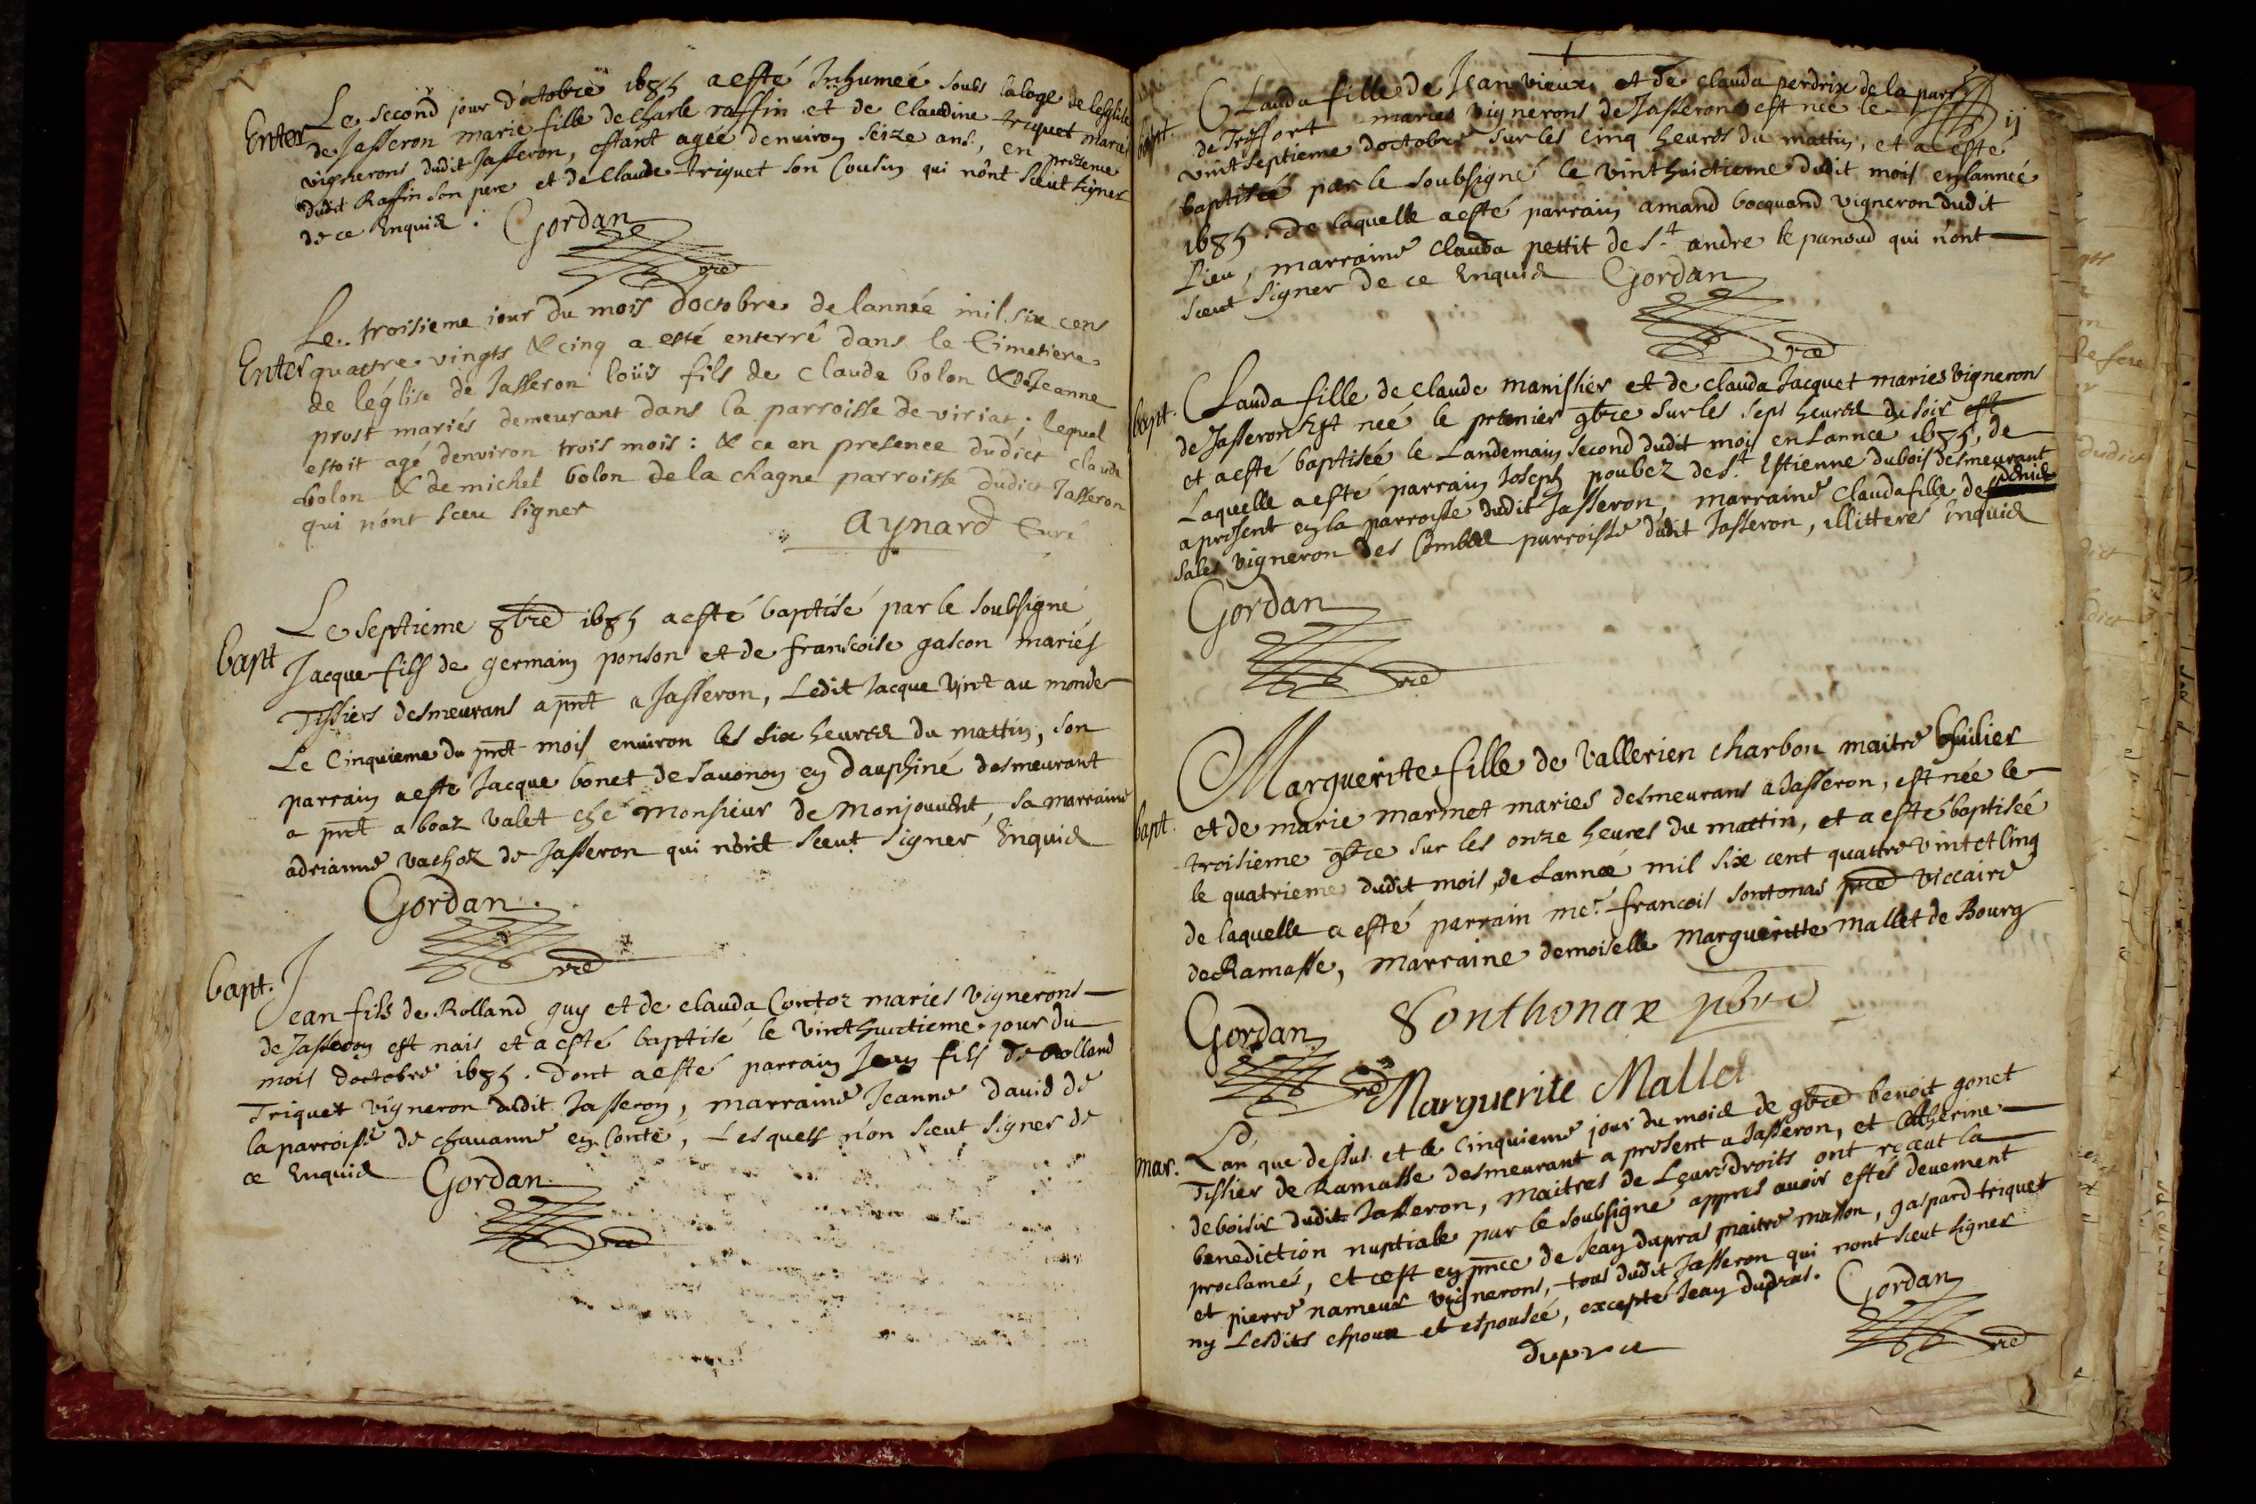 Enter
Le second jour d'octobre 1685 a esté Inhumeé soubs la loge de lesglise
de Jasseron marie fille de Charle raffin et de Claudine triquet mariés
vignerons dudit Jasseron, estant agée denviron seize ans, en presence
dudit Raffin son pere et de Claude triquet son Cousin qui n'ont sceut signer
de ce Enquis. Gordan
pre
Enter
Le troisieme iour du mois d'octobre de lannée mil six cens
quattre vingts & cinq a esté enterré dans le Cimetiere
de léglise de Jasseron loüis fils de Claude bolon & de Jeanne
prost mariés demeurant dans la parroisse de viriat; lequel
estoit agé denviron trois mois: & ce en presence dudict claude
bolon & de michel bolon de la chagne parroisse dudict Jasseron
qui n'ont sceu signer
Aynard Curé
bapt
Le septieme 8bre 1685 a esté baptisé par le soubsigné
Jacque fils de germain ponson et de francoise gascon mariés
Tissiers desmeurans a pnt a Jasseron, Ledit Jacque vint au monde
Le Cinquieme du pnt mois environ les six heures du mattin, son
parrain a esté Jacque bonet de Savonon en Dauphiné desmeurant
a pnt a boaz valet ché Monsieur de Monjouvent, sa marraine
adrianne vachoz de Jasseron qui n'ont sceut signer Enquis
Gordan
pre
bapt.
Jean fils de Rolland guy et de clauda Contoz mariés vignerons
de Jasseron est nais et a esté baptisé le vinthuictieme jour du
mois doctobre 1685. dont a esté parrain Jean fils de Rolland
Triquet vigneron dudit Jasseron, marraine Jeanne david de
la parroisse de chavanne en Conté, Lesquels n'on sceut signer de
ce Enquis Gordan
pre
ij
bapt
Clauda fille de Jean vieux et de clauda perdrix de la parr
de Treffort mariés vignerons de Jasseron est née le
vintseptieme d'octobre sur les cinq heures du mattin, et a esté
baptisée par le soubsigné le vinthuictieme dudit mois en lannée
1685. de laquelle a esté parrain amand bocquand vigneron dudit
Lieu, marraine Clauda pettit de St andre le panoud qui n'ont
sceut signer de ce Enquis Gordan
pre
bapt.
Clauda fille de claude manissier et de clauda Jacquet mariés vignerons
de Jasseron Est neé le premier 9bre sur les sept heures du soir
et a esté baptisée le Landemain second dudit mois en Lannée 1685, de
Laquelle a esté parrain Joseph poubez de St Estienne dubois desmeurant
a present en la parroisse dudit Jasseron, marraine Clauda fille de
Sales vigneron des Combes parroisse dudit Jasseron, illitteres Enquis
Gordan
pre
bapt.
Marguerite fille de Vallerien charbon maitre
et de marie marmet mariés desmeurans a Jasseron, est née le
troisieme 9bre sur les onze heures du mattin, et a esté baptisée
le quatrieme dudit mois, de Lannée mil six cent quattre vint et cinq
de laquelle a esté parrain mer francois sontonas pre viccaire
de Ramasse, marraine demoiselle Margueritte Mallet de Bourg
Gordan Sonthonax pbre
pre Marguerite Mallet
mar.
Lan que dessus et le Cinquieme jour du mois de 9bre benoit gonet
Tissier de Ramasse desmeurant a present a Jasseron, et Catherine
deboisir dudit Jasseron, maitres de Leurs droits ont receut la
benediction nuptiale par le soubsigné appres avoir estés deuement
proclamés, et cest en pnce de Jean dupras maitre masson, gaspard triquet
et pierre nameur vignerons, tous dudit Jasseron qui nont sceut signer
ny Lesdits espoux et espouseé, excepté Jean dupras.
Gordan
pre
dupra